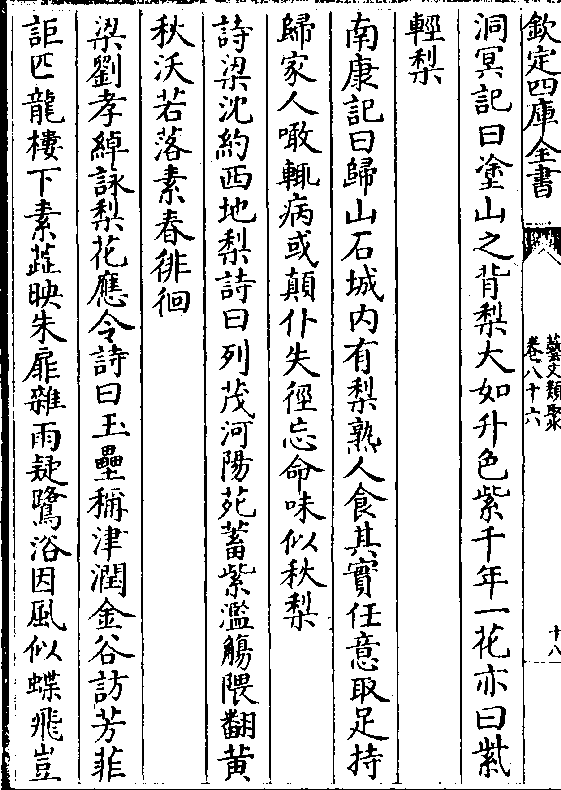 欽定四庫全書
藝文類聚
卷八十六
十八
洞冥記曰塗山之背梨大如升色紫千年一花亦曰紫
輕梨
南康記曰歸山石城内有梨熟人食其實任意取足持
歸家人噉輒病或顛仆失徑忘命味似秋梨
詩梁沈約西地梨詩曰列茂河陽苑蓄紫濫觴隈翻黄
秋沃若落素春徘徊
梁劉孝綽詠梨花應令詩曰玉壘稱津潤金谷訪芳菲
詎匹龍樓下素蘂映朱扉雜雨疑鷺浴因風似蝶飛豈